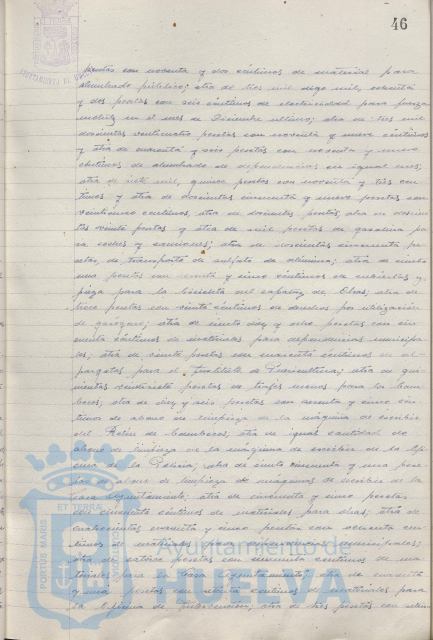 46
pesetas con noventa y dos céntimos de material para
alumbrado público; otra de tres mil digo mil, ochenta
y dos pesetas con seis céntimos de electricidad para fuerza
motriz en el mes de Diciembre último; otra de tres mil
doscientas veinticuatro pesetas con noventa y nueve céntimos
y otra de cuarenta y seis pesetas con noventa y nueve
céntimos de alumbrado de dependencias en igual mes;
otra de siete mil, quince pesetas con noventa y tres cén
timos y otra de doscientas cincuenta y nueve pesetas con
veinticinco céntimos, otra de doscientas pesetas, otra de doscien
tas veinte pesetas y otra de mil pesetas de gasolina pa
ra coches y camiones; otra de doscientas cincuenta pe
setas, de transporte de de otra de ciento
una pesetas con y cinco céntimos de cubiertas y
pieza para la bicicleta del capataz de Obras; otra de
trece pesetas con veinte céntimos de derechos por utilización
de otra de ciento diez y ocho pesetas con cin
cuenta céntimos de materiales para dependencias municipa
les; otra de veinte pesetas con cuarenta céntimos de al
pargatas para el Instituto de Puericultura; otra de qui
nientas veintisiete pesetas de para los bom
beros; otra de diez y seis pesetas con y cinco cén
timos de abono de limpieza de la máquina de escribir
del Retén de bomberos; otra de igual cantidad de
abono de limpieza de la máquina de escribir de la Ofi
cina de la Policía; otra de ciento cincuenta y una pese
tas de abono de limpieza de máquinas de escribir de la
Casa Ayuntamiento; otra de cincuenta y cinco pesetas
con cincuenta céntimos de materiales para obras; otra de
cuatrocientas cuarenta y cinco pesetas con cén
timos materiales para dependencias municipales;
otra de catorce pesetas con cincuenta céntimos de ma
teriales para la Casa Ayuntamiento; otra de cuarenta
y una pesetas con ochenta céntimos de materiales para
la Oficina de Intervención; otra de tres pesetas con
PORTUS MARIS
ET TERRAE
CUSTODIA
Ayuntamiento de
HUELVA